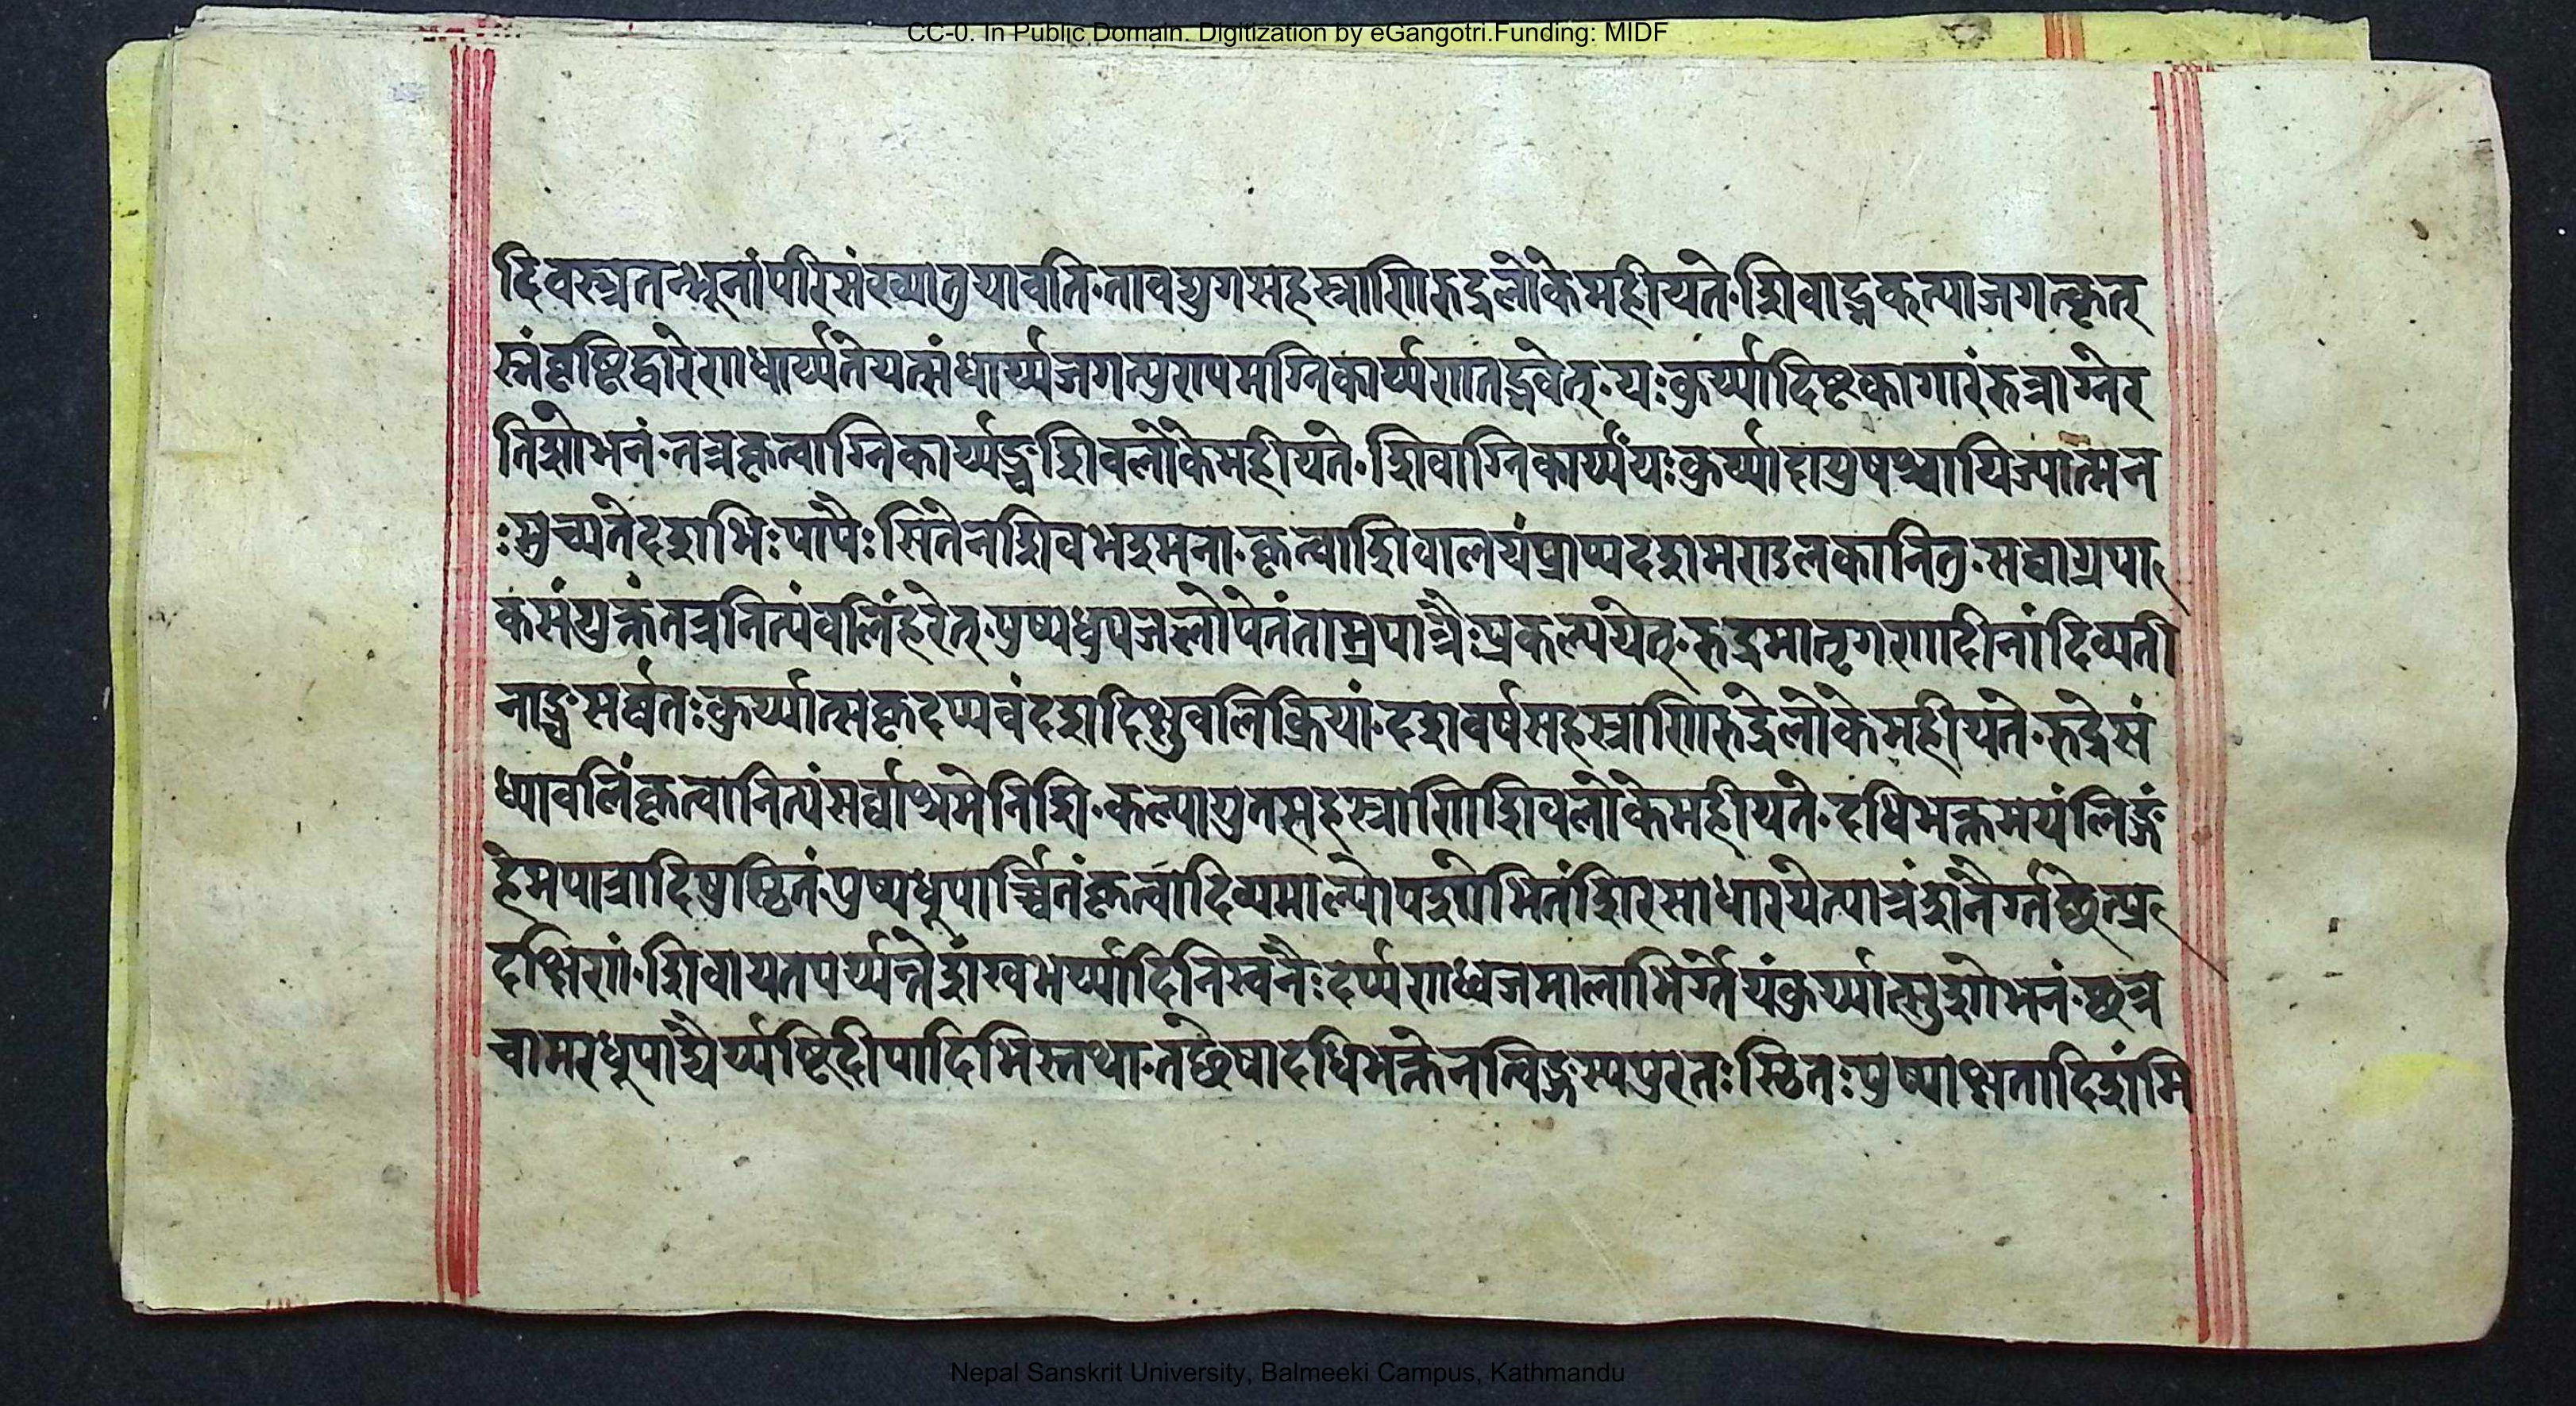 CC-0. In Public Domain. Digitization by eGangotri.Funding: MIDF
दिवस्त्रतन्भूनांपरिसंख्यातुयावति॰तावद्युगसहस्त्राणिरुद्रलोकेमहीयते॰शिवाद्गकत्पाजगत्कृत्
स्नंवृष्टिद्वारेणधार्य्यतेयत्संधार्य्यजगत्पुण्यमग्निकार्य्यणतद्भवेत्॰यःकुर्य्यादिष्टकागारंरुत्राग्नेर
तिशोभनं॰तत्रकृत्वाग्निकार्य्यञ्चशिवलोकेमहीयते॰शिवाग्निकार्य्यंयःकुर्य्याद्दापुषत्र्यायिज्यात्मन
ःमुच्यतेदशभिःपापैःसितेनशिवभस्मना॰कृत्वाशिवालयंप्राप्यदशमण्डलकानितु॰सद्वाग्रपा
कसंयुक्तंतत्रनित्यंवलिंहरेत्॰पुष्यधूपजलोपेतंताम्रपात्रैःप्रकल्पयेत्॰रुद्रमातृगणादीनांदिव्यती
नाञ्चसर्वतःकुर्य्यात्सकृदप्यवंदशदिक्षुवलिक्रियां॰दशवर्षसहस्त्राणिरुद्रेलोकेमहीयते॰रुद्रेसं
ध्यावलिंकृत्वानित्यंसर्वाश्रमेनिशि॰कल्पायुतसहस्त्राणिशिवलोकेमहीयते॰दधिभक्तमयंलिङ्गं
हेमपात्रादिषुस्थितंपुष्यधूपार्च्चितंकृत्वादिव्यमाल्योपशोभितंशिरसाधारयेत्पात्रंशनैर्ग्गछेत्प्र
दक्षिणां॰शिवायतपर्य्यन्तेशंखभर्य्यादिनिस्वनैःदर्प्पणध्वजमालाभिर्ग्गेयंकुर्य्यात्सुशोभनं॰छत्र
चामरधूपाद्यैर्य्यष्टिदीपादिभिस्तथा॰तछेषादधिभक्तेनत्विङ्गस्यपुरतःस्थितःपुष्याक्षतादिशंमि
Nepal Sanskrit University, Balmeeki Campus, Kathmandu